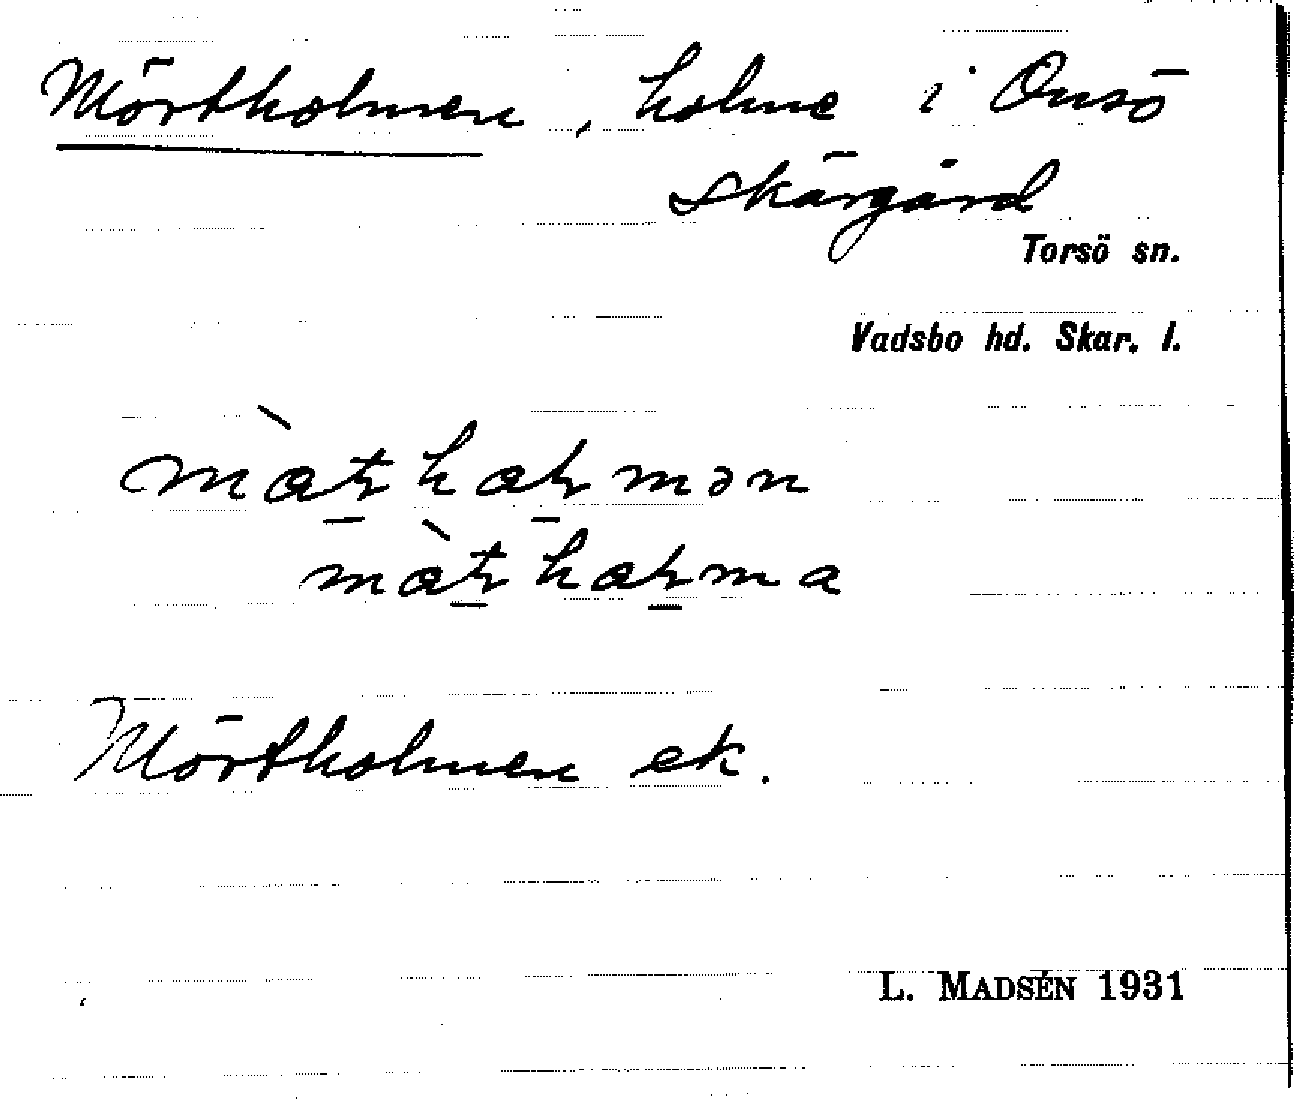 Mörtholmen, holme i Onsö
skärgård
Torsö sn.
Vadsbo hd. Skar. l.
Mörtholmen ek.
L. MADSÉN 1931